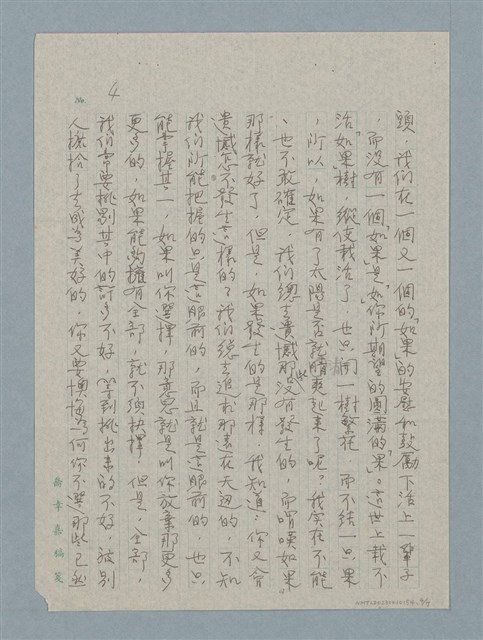 4
No.
頭，我們在一個又一個的「如果」的安慰和鼓勵下活上一輩子
，而沒有一個「如果」是「如你所期望的圓滿的果」。這世上栽不
活「如果」樹，縱使栽活了，也只開一樹繁花，而不結一只果
，所以，如果有了太陽是否就晴爽起來了呢？我實在不能
、也不敢確定。我們總去遺憾那些沒有發生的，而喟嘆如果
那樣就好了，但是，如果發生的是那樣，我知道：你又會
遺憾怎不發生這樣的？我們總去追求那遠在天邊的，不知
我們所能把握的只是這眼前的，而且就是這眼前的，也只
能掌握其一，如果叫你選擇，那意思就是叫你放棄那更多
更多的，如果能夠擁有全部，就不須抉擇，但是，全部，
我們常要挑剔其中的許多不好，等到挑出來的不好，被別
人撿拾了去成為美好的，你又要懊悔為何你不選那些已然
喬幸嘉稿箋